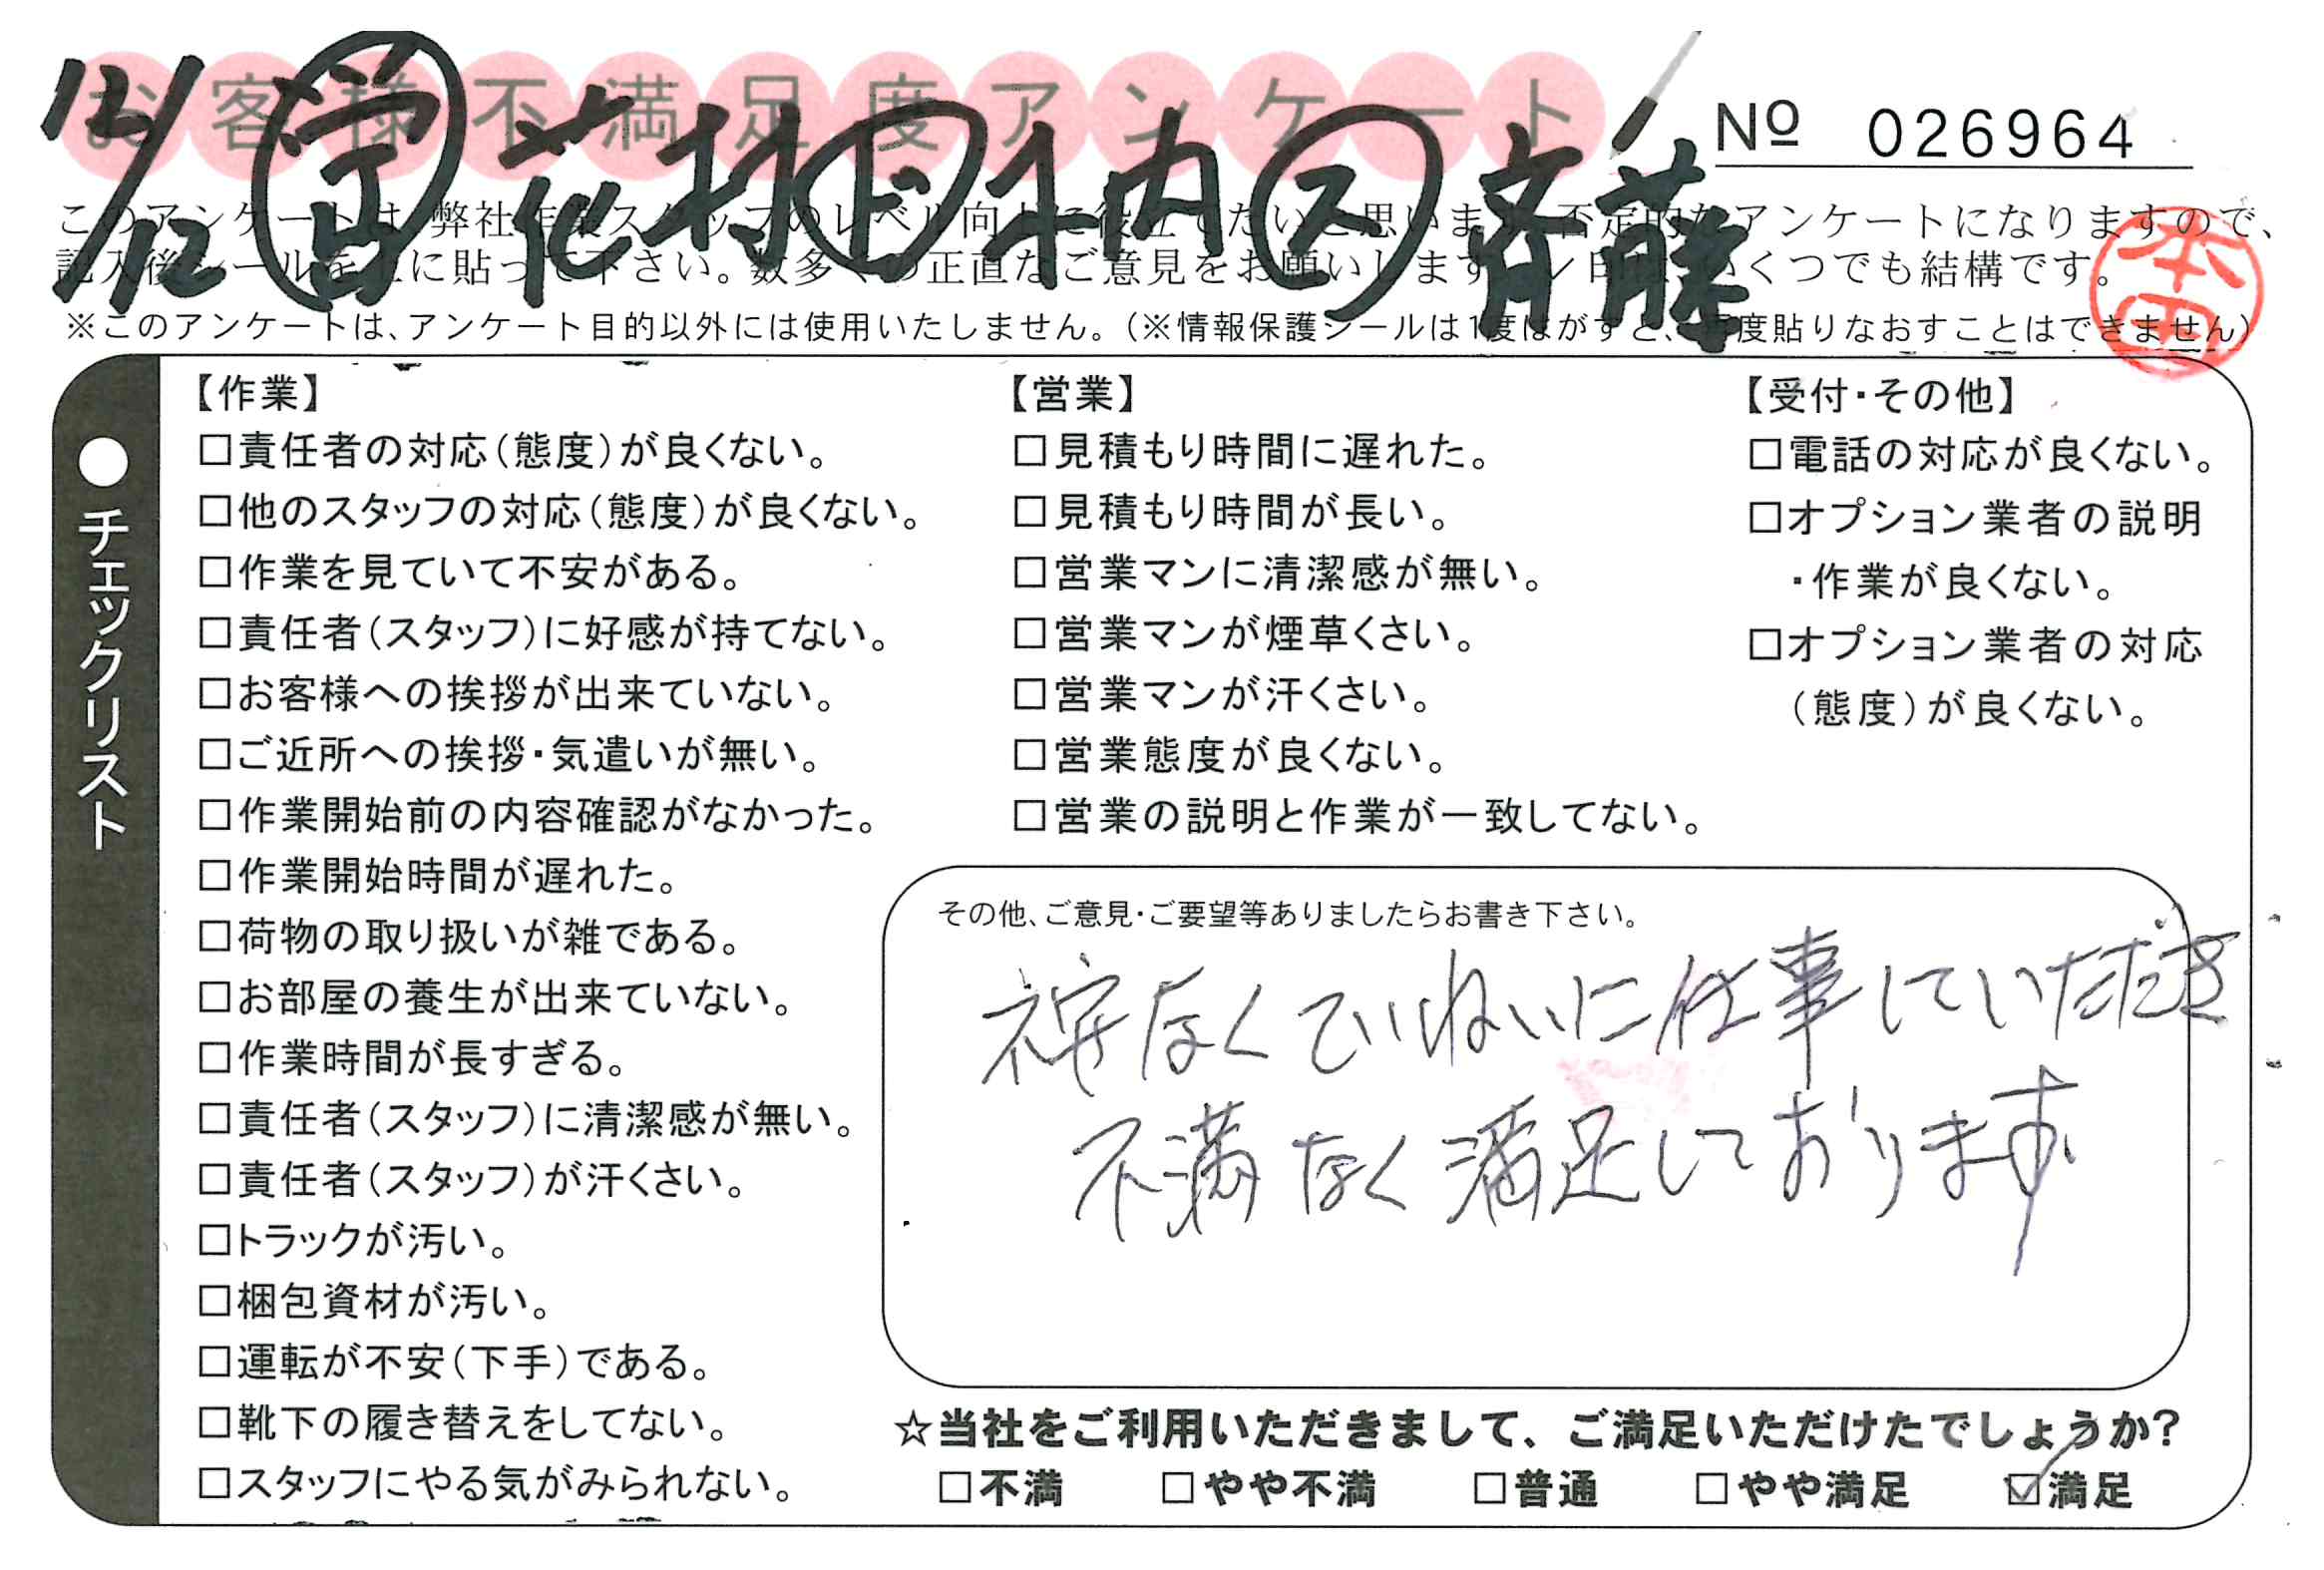 お客様不満足度アンケート
№ 026964
12/12 営 花村 ド 内 ス 斉藤
このアンケートは、弊社作業スタッフのレベル向上に役立てたいと思います。否定的なアンケートになりますので、
記入後シールを上に貼って下さい。数多くの正直なご意見をお願いします。レ印は、いくつでも結構です。
※このアンケートは、アンケート目的以外には使用いたしません。（※情報保護シールは1度はがすと、再度貼りなおすことはできません）
本田
●チェックリスト
【作業】
□責任者の対応（態度）が良くない。
□他のスタッフの対応（態度）が良くない。
□作業を見ていて不安がある。
□責任者（スタッフ）に好感が持てない。
□お客様への挨拶が出来ていない。
□ご近所への挨拶・気遣いが無い。
□作業開始前の内容確認がなかった。
□作業開始時間が遅れた。
□荷物の取り扱いが雑である。
□お部屋の養生が出来ていない。
□作業時間が長すぎる。
□責任者（スタッフ）に清潔感が無い。
□責任者（スタッフ）が汗くさい。
□トラックが汚い。
□梱包資材が汚い。
□運転が不安（下手）である。
□靴下の履き替えをしてない。
□スタッフにやる気がみられない。
【営業】
□見積もり時間に遅れた。
□見積もり時間が長い。
□営業マンに清潔感が無い。
□営業マンが煙草くさい。
□営業マンが汗くさい。
□営業態度が良くない。
□営業の説明と作業が一致してない。
【受付・その他】
□電話の対応が良くない。
□オプション業者の説明
・作業が良くない。
□オプション業者の対応
（態度）が良くない。
その他、ご意見・ご要望等ありましたらお書き下さい。
なくていねいに仕事していただき
不満なく満足しております
☆当社をご利用いただきまして、ご満足いただけたでしょうか？
□不満 □やや不満 □普通 □やや満足 ☑満足